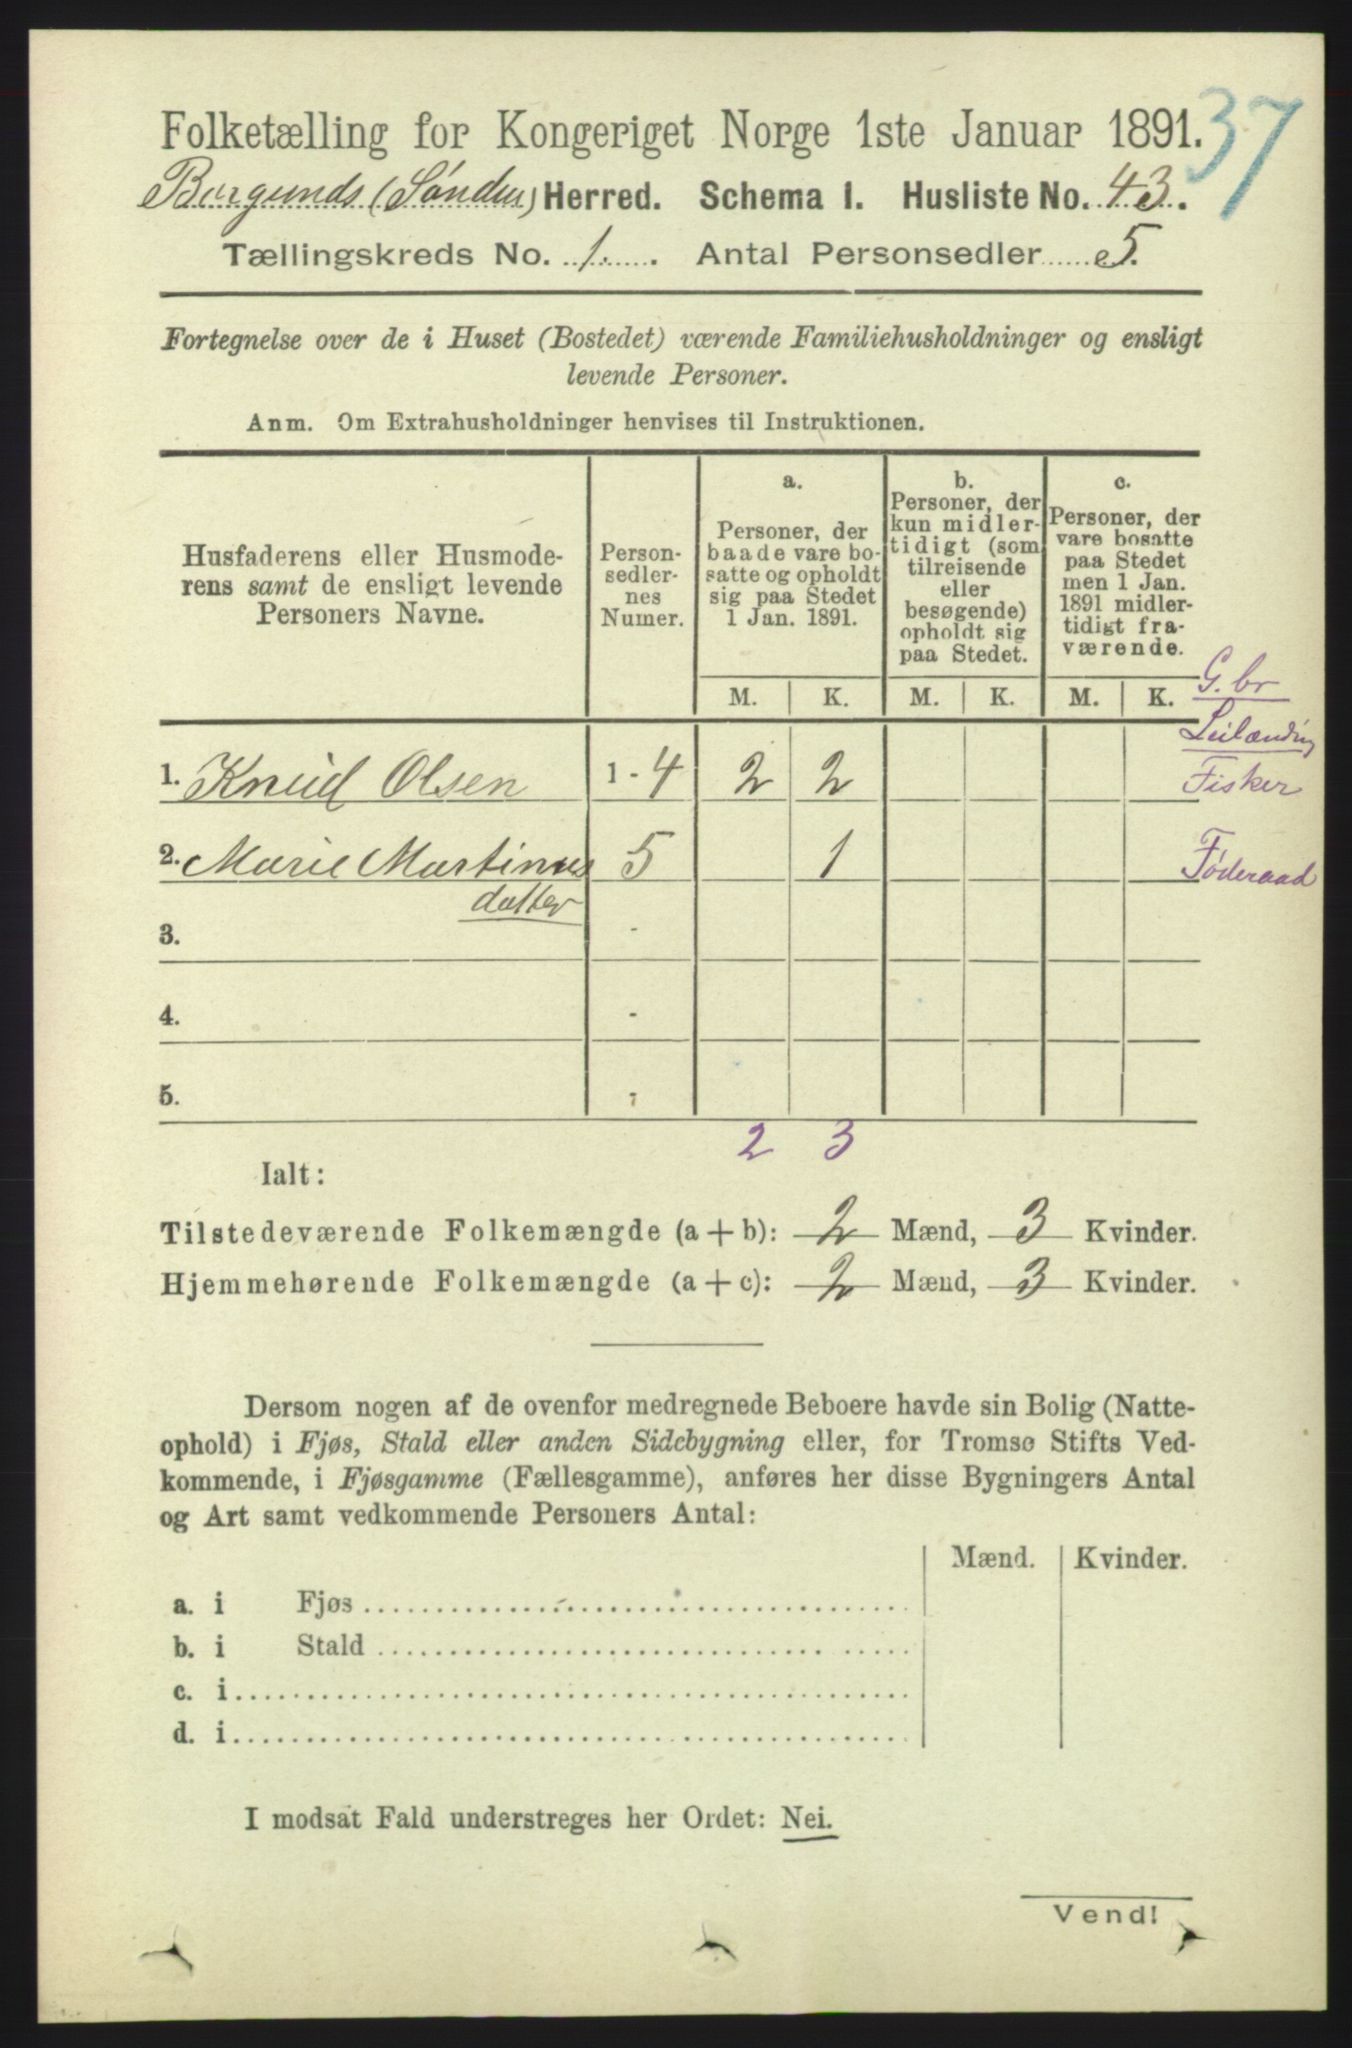 37
Folketælling for Kongeriget Norge 1ste Januar 1891.
Borgunds (Søndre) Herred. Schema 1. Husliste No. 43.
Tællingskreds No. 1. Antal Personsedler 5.
Fortegnelse over de i Huset (Bostedet) værende Familiehusholdninger og ensligt
levende Personer.
Anm. Om Extrahusholdninger henvises til Instruktionen.
Husfaderens eller Husmode-
rens samt de ensligt levende
Personers Navne.
Person-
sedler-
nes
Numer.
a.
Personer, der
baade vare bo-
satte og opholdt
sig paa Stedet
1 Jan. 1891.
b.
Personer, der
kun midler-
tidigt (som
tilreisende
eller
besøgende)
opholdt sig
paa Stedet.
c.
Personer, der
vare bosatte
paa Stedet
men 1 Jan.
1891 midler-
tidigt fra-
værende.
M. K. M. K. M. K.
G.br
Leilænding
1. Knud Olsen 1 - 4 2 2 Fisker
2. Marie Martinus 5 1 Føderaad
datter
3. -
4. -
5. -
2 3
Ialt:
Tilstedeværende Folkemængde (a + b): 2 Mænd, 3 Kvinder.
Hjemmehørende Folkemængde (a + c): 2 Mænd, 3 Kvinder.
Dersom nogen af de ovenfor medregnede Beboere havde sin Bolig (Natte-
ophold) i Fjøs, Stald eller anden Sidebygning eller, for Tromsø Stifts Ved-
kommende, i Fjøsgamme (Fællesgamme), anføres her disse Bygningers Antal
og Art samt vedkommende Personers Antal:
Mænd. Kvinder.
a. i Fjøs
b. i Stald
c. i
d. i
I modsat Fald understreges her Ordet: Nei.
Vend!